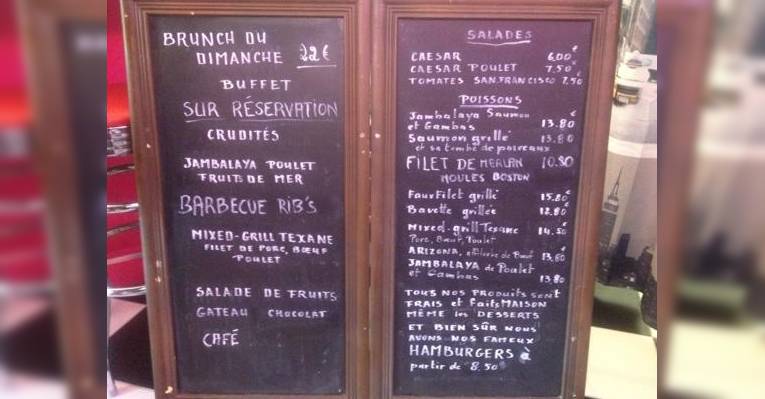 BRUNCH DU
DIMANCHE 22€
BUFFET
SUR RÉSERVATION
CRUDITÉS
JAMBALAYA POULET
FRUITS DE MER
BARBECUE RIB'S
MIXED-GRILL TEXANE
FILET DE PORC, BŒUF
POULET
SALADE DE FRUITS
GATEAU CHOCOLAT
CAFÉ
SALADES
CAESAR 6,00€
CAESAR POULET 7,50€
TOMATES SAN.FRANCISCO 7,50€
POISSONS
Jambalaya Saumon
et Gambas 13.80€
Saumon grillé 13.80
et sa tombé de poireaux
FILET DE MERLAN 10.80
MOULES BOSTON
Faux Filet grillé 15.80€
Bavette grillée 12.80
Mixed-grill Texane 14.50€
Porc, Bœuf, Poulet
ARIZONA, de Bœuf 13.80€
JAMBALAYA de Poulet
et Gambas 13.80
TOUS NOS PRODUITS SONT
FRAIS et FAITS MAISON
MÊME les DESSERTS
ET BIEN SÛR NOUS
AVONS NOS FAMEUX
HAMBURGERS à
partir de 8.50€